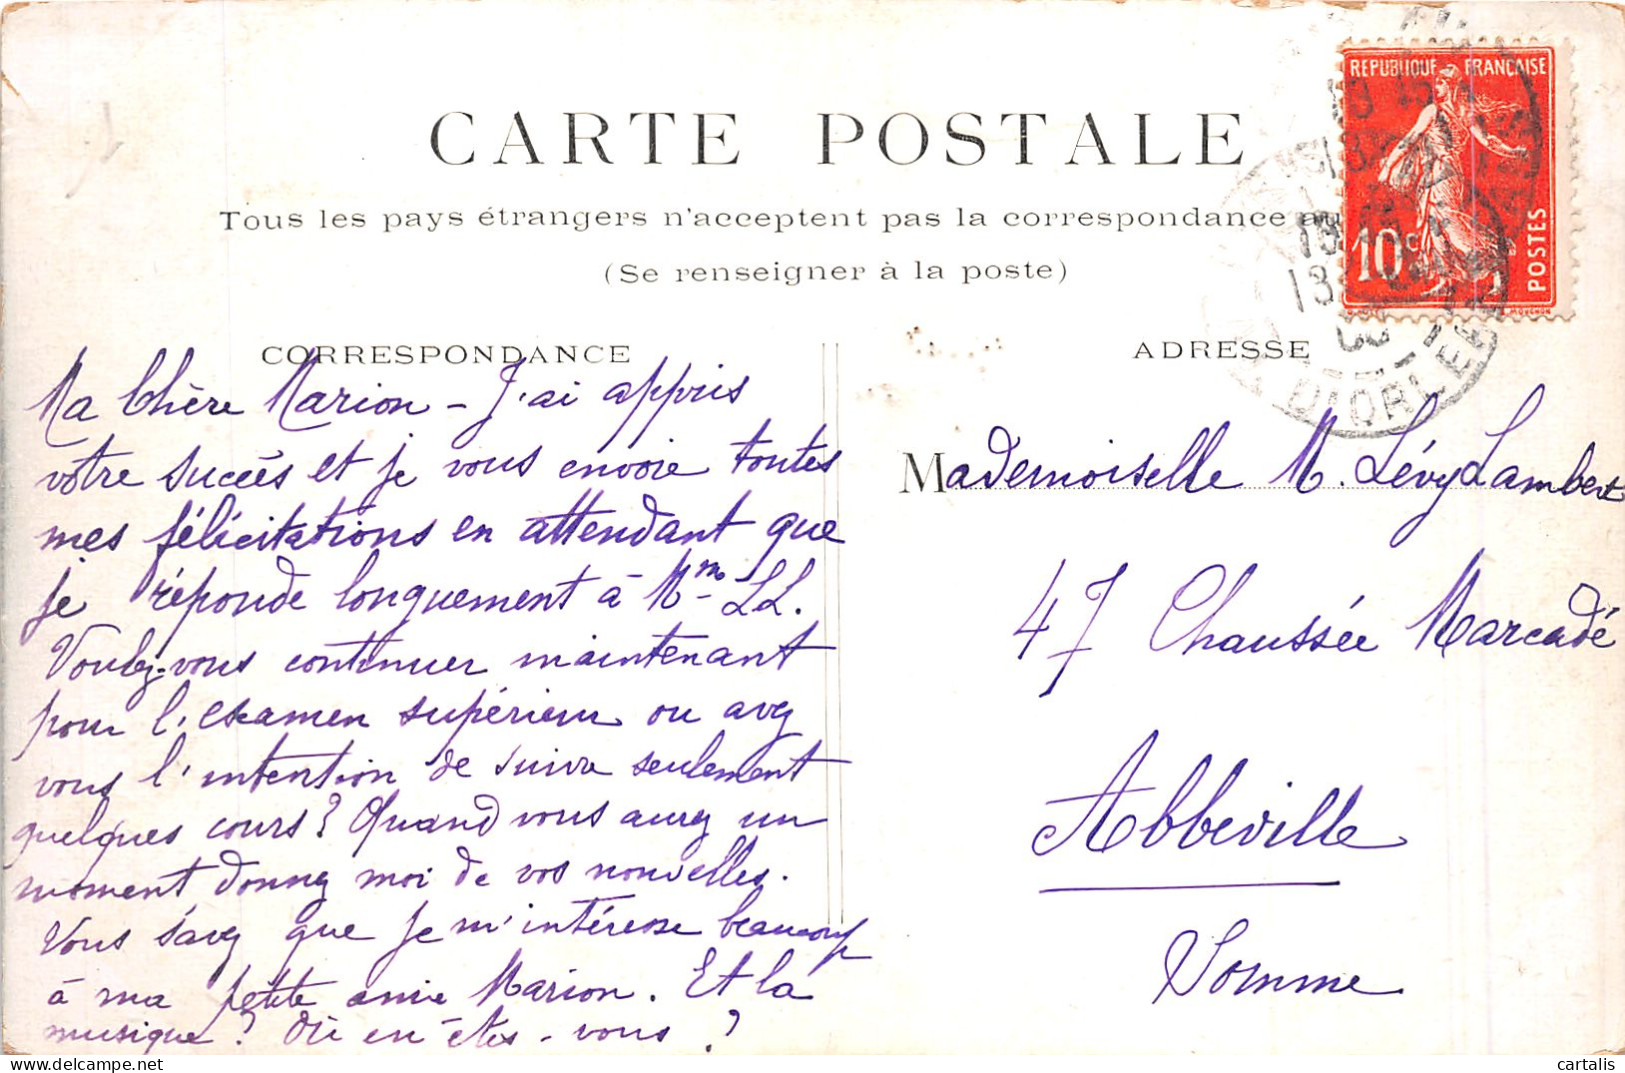 CARTE POSTALE
Tous les pays étrangers n'acceptent pas la correspondance
(Se renseigner à la poste)
REPUBLIQUE FRANÇAISE
10c
POSTES
CORRESPONDANCE
Ma Chère Marion - J'ai appris
votre succès et je vous envoie toutes
mes félicitations en attendant que
je réponde longuement à Mme LL.
Voulez-vous continuer maintenant
pour l'examen supérieur ou avez
vous l'intention de suivre seulement
quelques cours? Quand vous aurez un
moment donnez moi de vos nouvelles.
Vous savez que je m'intéresse beaucoup
à ma petite amie Marion. Et la
musique? Où en êtes-vous?
ADRESSE
Mademoiselle M. Lévy Lambert
47 Chaussée Marcadé
Abbeville
Somme
D'ORLEANS
delcampe.net
cartalis